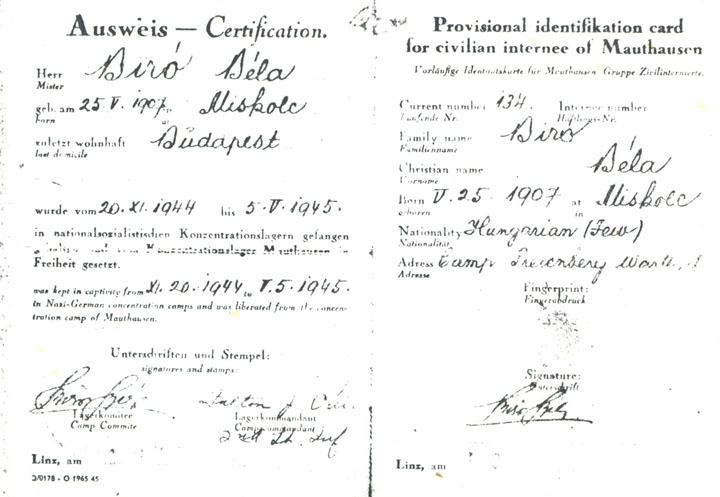 Ausweis — Certification.
Herr Biró Béla
Mister
geb. am 25 V. 1907 Miskolc
born at
zuletzt wohnhaft Budapest
last domicile
wurde vom 20. XI. 1944 bis 5. V. 1945.
in nationalsozialistischen Konzentrationslagern gefangen
und vom Konzentrationslager Mauthausen in
Freiheit gesetzt.
was kept in captivity from XI. 20. 1944 to V. 5 1945.
in Nazi-German concentration camps and was liberated from the concen-
tration camp of Mauthausen.
Unterschriften und Stempel:
signatures and stamps:
Lagerkomitee
Camp Commite
Lagerkommandant
Camp commandant
2nd Lt. Inf
Linz, am
2/0178 - O 1965 45
Provisional identifikation card
for civilian internee of Mauthausen
Vorläufige Identitätskarte für Mauthausen Gruppe Zivilinternierte.
Current number 134. Internee number
Laufende Nr. Häftlings-Nr.
Family name Biró
Familienname
Christian name Béla
Vorname
Born V. 25. 1907 at Miskolc
geboren in
Nationality Hungarian (Jew)
Nationalität
Adress Camp
Adresse
Fingerprint:
Fingerabdruck
Signature:
Unterschrift
Biró Béla
Linz, am